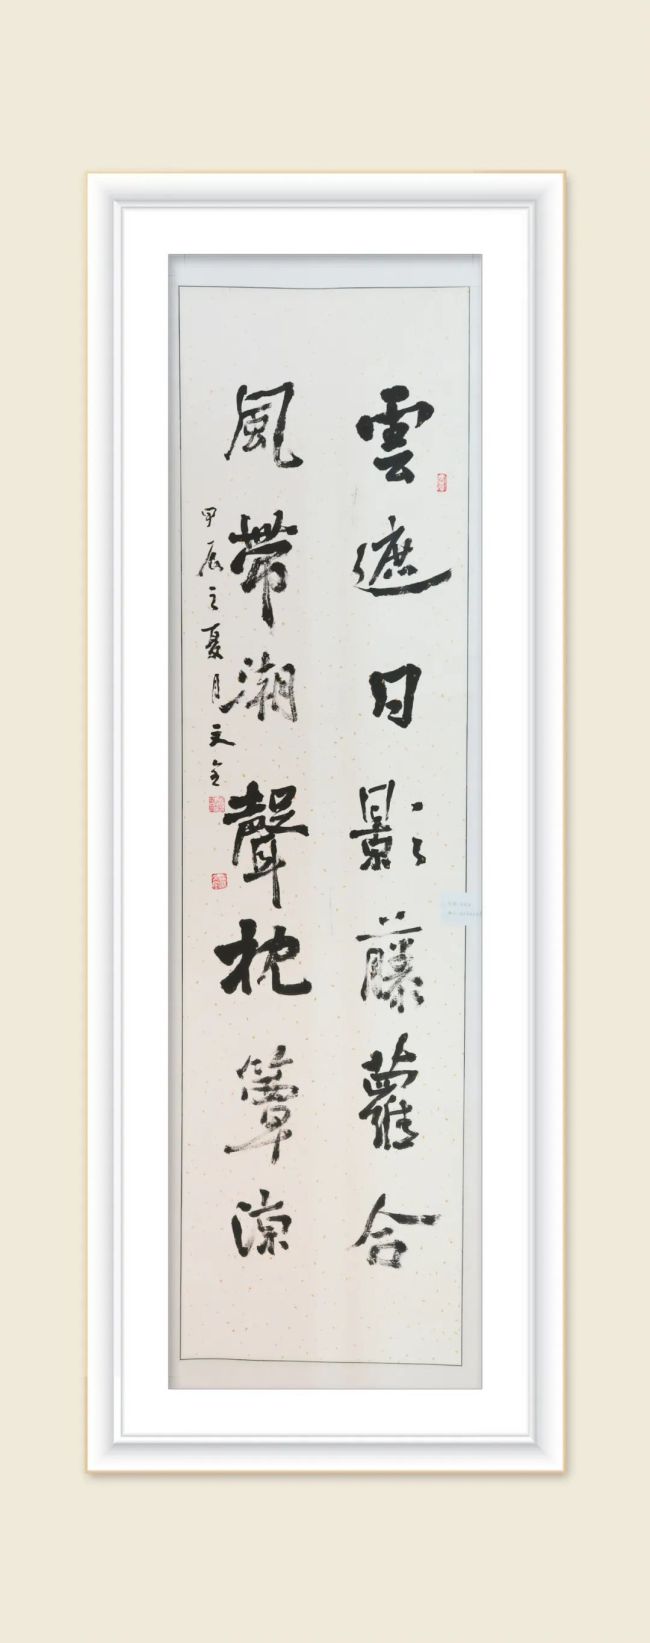 雲遮日影藤蘿合
風帶潮聲枕簟涼
甲辰之夏月文全